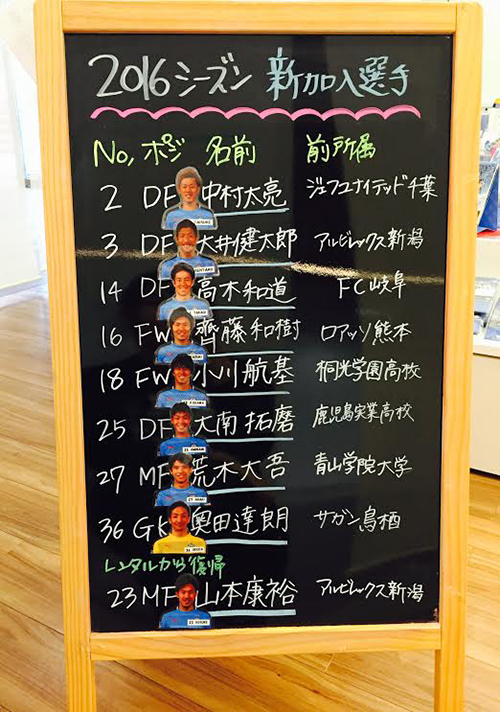 2016シーズン 新加入選手
No, ポジ 名前 前所属
2 DF 中村太亮 ジェフユナイテッド千葉
3 DF 大井健太郎 アルビレックス新潟
14 DF 高木和道 FC岐阜
16 FW 齊藤和樹 ロアッソ熊本
18 FW 小川航基 桐光学園高校
25 DF 大南拓磨 鹿児島実業高校
27 MF 荒木大吾 青山学院大学
36 GK 奥田達朗 サガン鳥栖
レンタルから復帰
23 MF 山本康裕 アルビレックス新潟